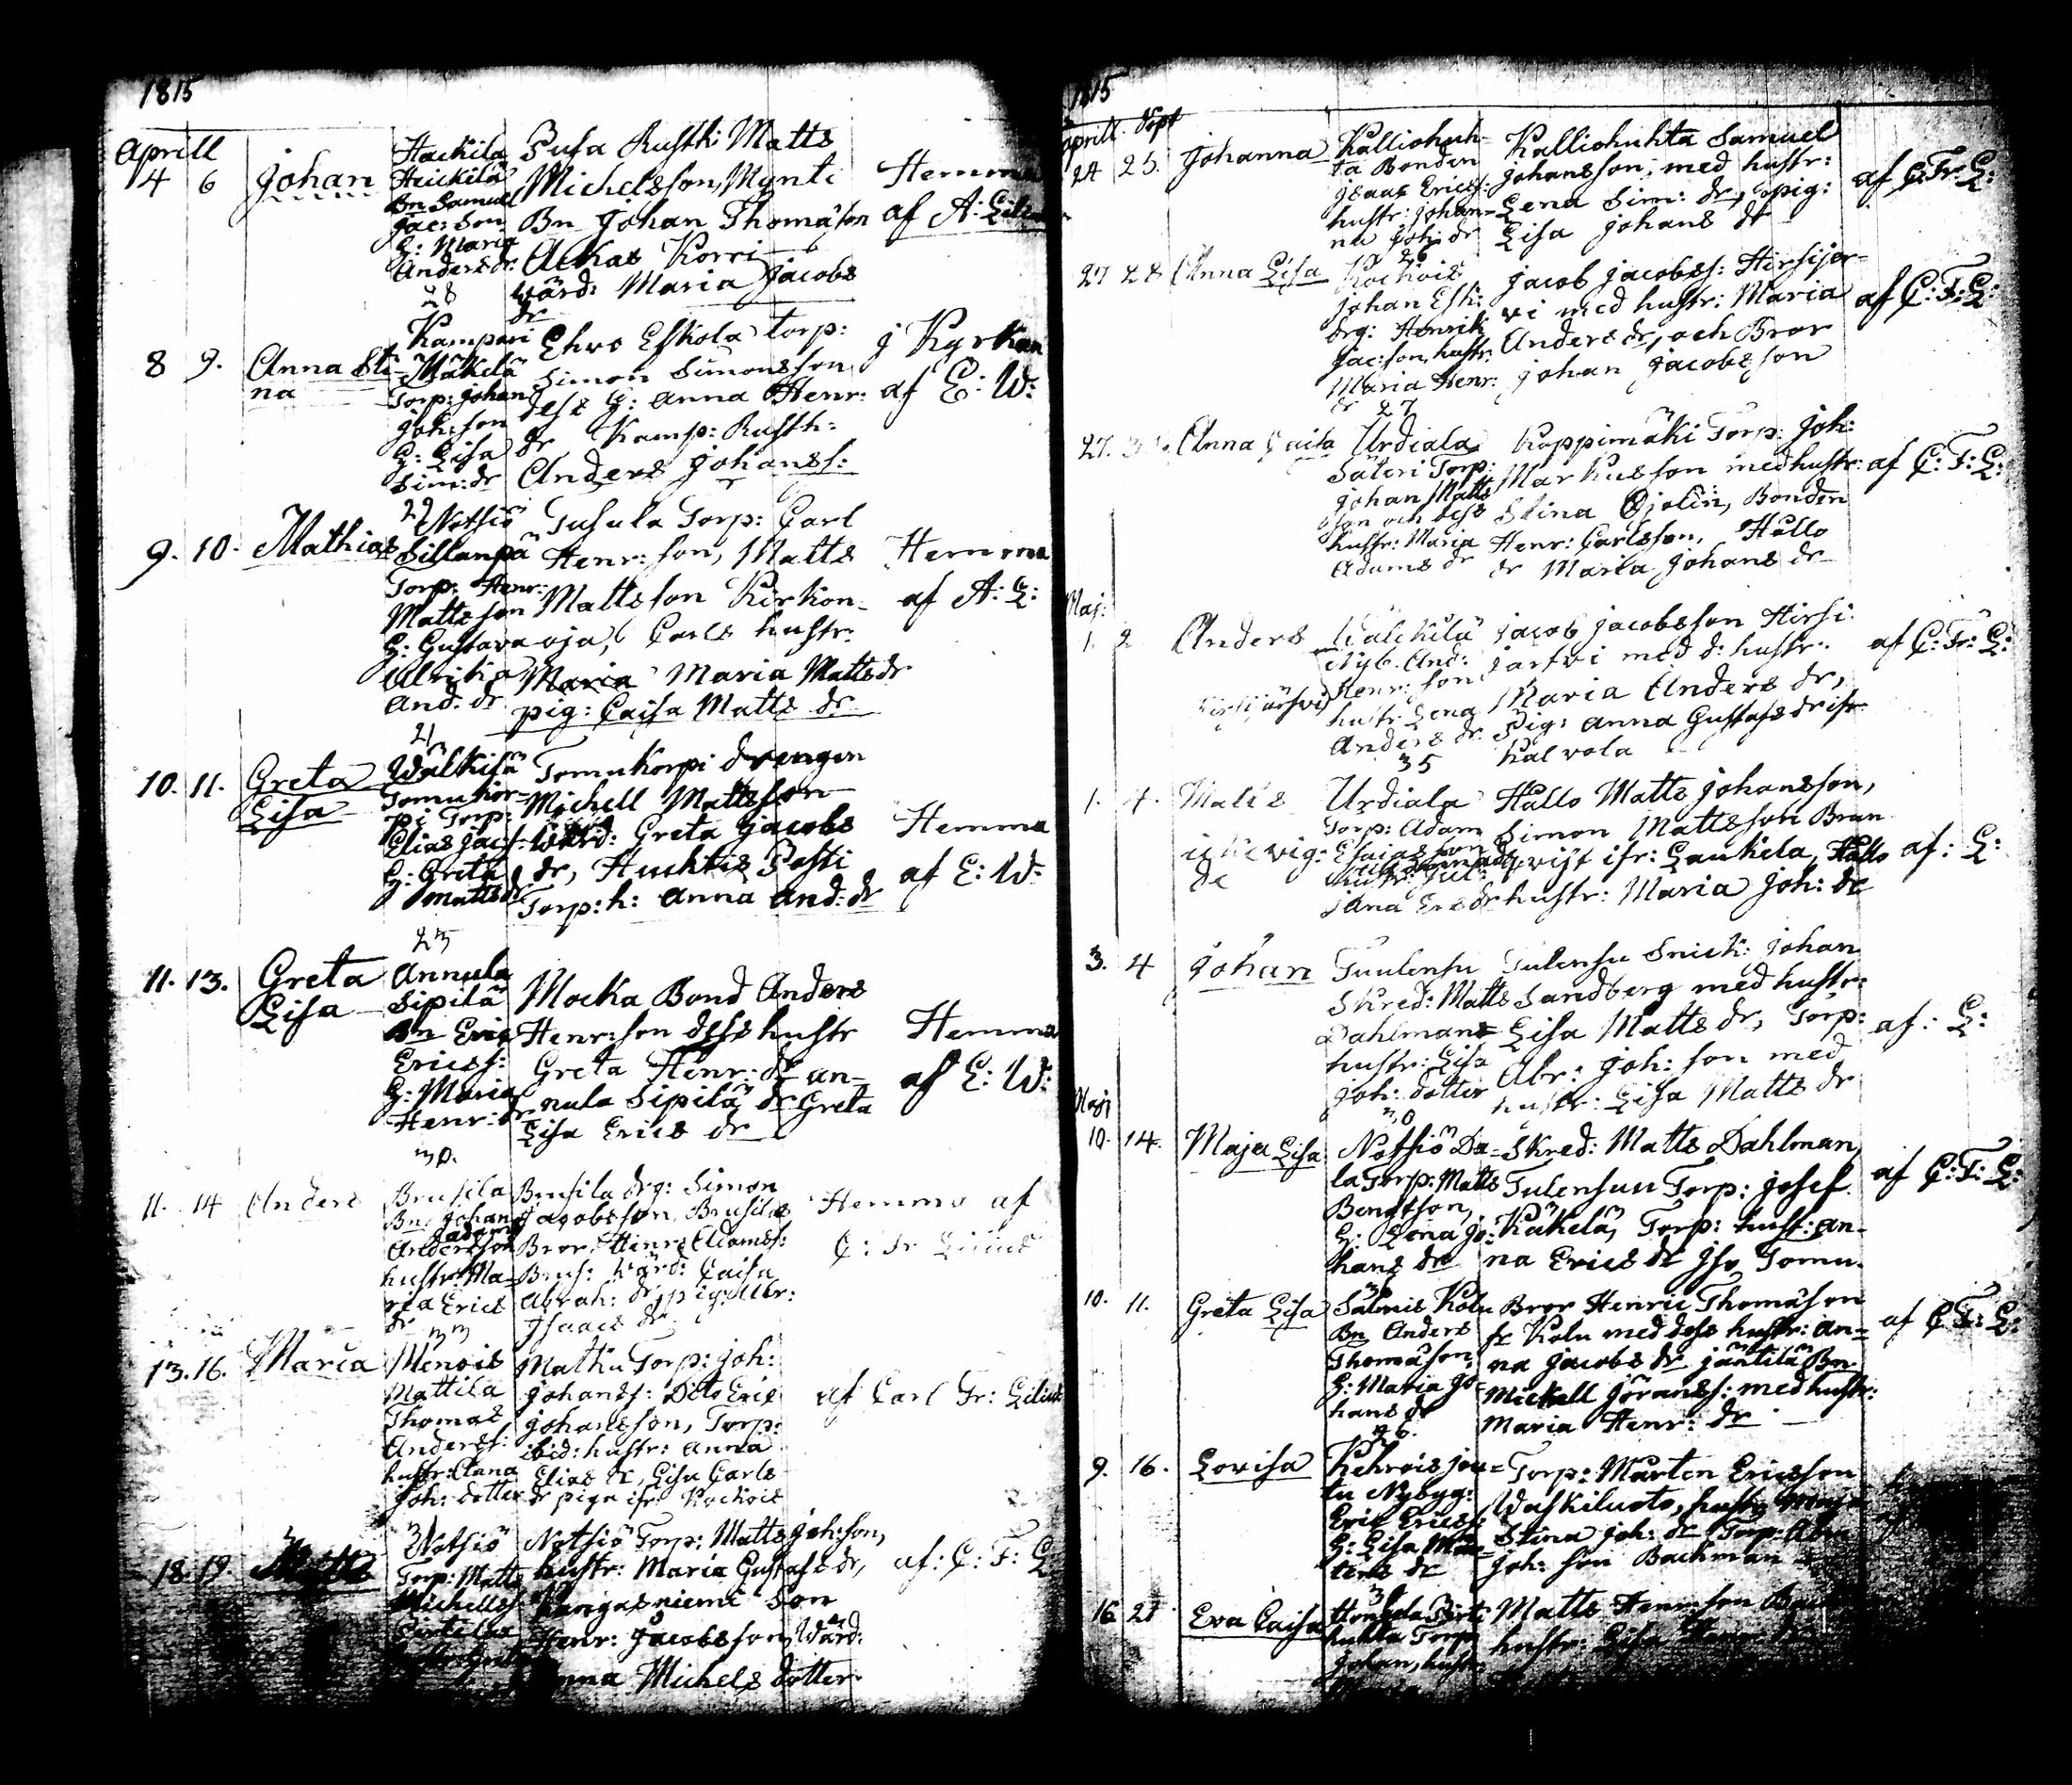 1815
Aprill
4 6 Johan
Hackila
Heickilä
Bn Samuel
Jac: Son
H: Maria
Anders dr
28
Susa Rusth: Matts
Michelsson, Mynti
Bn Johan Thomæson
Ackas Korri
wärd: Maria Jacobs
dr
Hemma
af A:
8 9. Anna Sti-
na
Kampari
Mäkelä
Torp: Johan
Joh: son
H: Lisa
Sim: dr
29
Ehro Eskola torp:
Simon Simonsson
dess H: Anna Henr:
dr Kamp: Rusth:
Anders Johanss:
j Kyrkan
af E: W:
9. 10. Mathias
Notsiö
Sillanpä
Torp: Henr:
Mattsson
H: Gustava
Ulrika
And. dr
21
Tusula Torp: Carl
Henr: son, Matts
Mattsson Kirkon-
oja, Carls hustr:
Maria Maria Matts dr
pig: Caisa Matts dr
Hemma
af A: L:
10. 11. Greta
Lisa
Wälkilä
Tomukor-
pi Torp:
Elias Jacs:
H: Greta
Matts dr
23
Tomukorpi drengen
Michell Mattsson
wärd: Greta Jacobs
dr, Huhtis Passi
Torp: h: Anna And: dr
Hemma
af E: W:
11. 13. Greta
Lisa
Annula
Sipilä
Bn Eric
Ericss:
H: Maria
Henr: dr
30.
Mocka Bond Anders
Henr: son dess hustr
Greta Henr: dr an-
nula Sipilä dr Greta
Lisa Erics dr
Hemma
af E: W:
11. 14 Anders
Brusila
Bn Johan
Adam
Andersson
hustr: Ma-
ria Erics
dr 33
Brusila drg: Simon
Jacobsson, Brusila
Bror, Henr: Adamss:
Brus: wärd: Caisa
Abrah: dr, pig: Ulr:
Isaacs dr
Hemma af
C: Fr Lilius
13. 16. Maria
Menois
Mattila
Thomas
Anderss:
hustr: Anna
Joh: dotter
31
Mathu Torp: Joh:
Johanss: Dito Eric
Johansson, Torp:
ibid: hustr: Anna
Elias dr, Lisa Carls
dr piga ifr: Kockois
af Carl Fr: Lilius
18. 19. Matts
Notsiö
Torp: Matts
Michelss:
Notsiö Torp: Matts Joh: son,
hustr: Maria Gustafs dr,
Kangasniemi Son
Henr: Jacobsson, Wärd:
Anna Michels dotter
af: C: F: L:
1815
Aprill. döpt
24 25. Johanna
Kalliohuh-
ta Bonden
Isaac Ericss:
hustr: Johan-
na Joh: dr
26
Kalliohuhta Samuel
Johansson, med hustr:
Lena Sim: dr, pig:
Lisa Johans dr
af C: Fr: L:
27 28 Anna Lisa
Kockois
Johan Esk:
drg: Henrik
Jac: son, hustr:
Maria Henr:
dr 27
Jacob Jacobss: Hirsijer-
vi med hustr: Maria
Anders dr, och Bror
Johan Jacobsson
af C: F: L:
27. Anna Caisa
Urdiala
Säteri Torp:
Johan Matts
son och dess
hustr: Maria
Adams dr
Koppimäki Torp: Joh:
Markusson med hustr:
Stina Öjolin, Bonden
Henr: Carlsson, Hallo
dr Maria Johans dr
af C: F: L:
Maj:
1. 2 Anders
Hirsijärfvi
Wälckilä
Nyb. And:
Henr: son
hustr Lena
Anders dr
35
Jacob Jacobsson Hirsi
jarfvi med d: hustr:
Maria Anders dr,
Pig: Anna Gustafs dr ifr
Kalvola
af C: Fr: L:
1. 4. Matts
Urdiala
Torp: Adam
Esaiasson
Hallo Matts Johansson,
Simon Mattsson Brun
qvist ifr: Laukela, Hallo
hustr: Maria Joh: dr
af: L:
3. 4 Johan
Tuulensu
Skred: Matts
Dahlmans
hustr: Lisa
Joh: dotter
30
Tulensu Snick: Johan
Sandberg med hustr:
Lisa Matts dr, Torp:
Abr: Joh: son med
hustr: Lisa Matts dr
af: L:
Maj
10. 14. Maja Lisa
Notsiö Da-
la Torp: Matts
Bengtson,
H: Lena Jo-
hans dr
Skred: Matts Dahlman
Tulensuu Torp: Josef
Käkelä, Torp: hust: an-
na Erics dr ifr Tomu
af C: F: L:
10. 11. Greta Lisa
Salmis Kolu
Bn Anders
Thomæson,
H: Maria Jo-
hans dr
26.
Bror Henric Thomæson
fr Kolu med dess hustr: an-
na Jacobs dr jäntilä Bn
Mickell Joranss: med hustr:
Maria Henr: dr
af C F: L:
9. 16. Lovisa
Kehrois jou-
tu Nybyg:
Eric Ericss:
H: Lisa Mår-
tens dr
Torp: Mårten Ericsson
Waskiluoto, hustr Maja
Stina Joh: dr Torp: Abr
Joh: son Backman
16 21 Eva Caisa
huhta Torp
Johan, hustr:
Matts Henr: son
hustr: Lisa